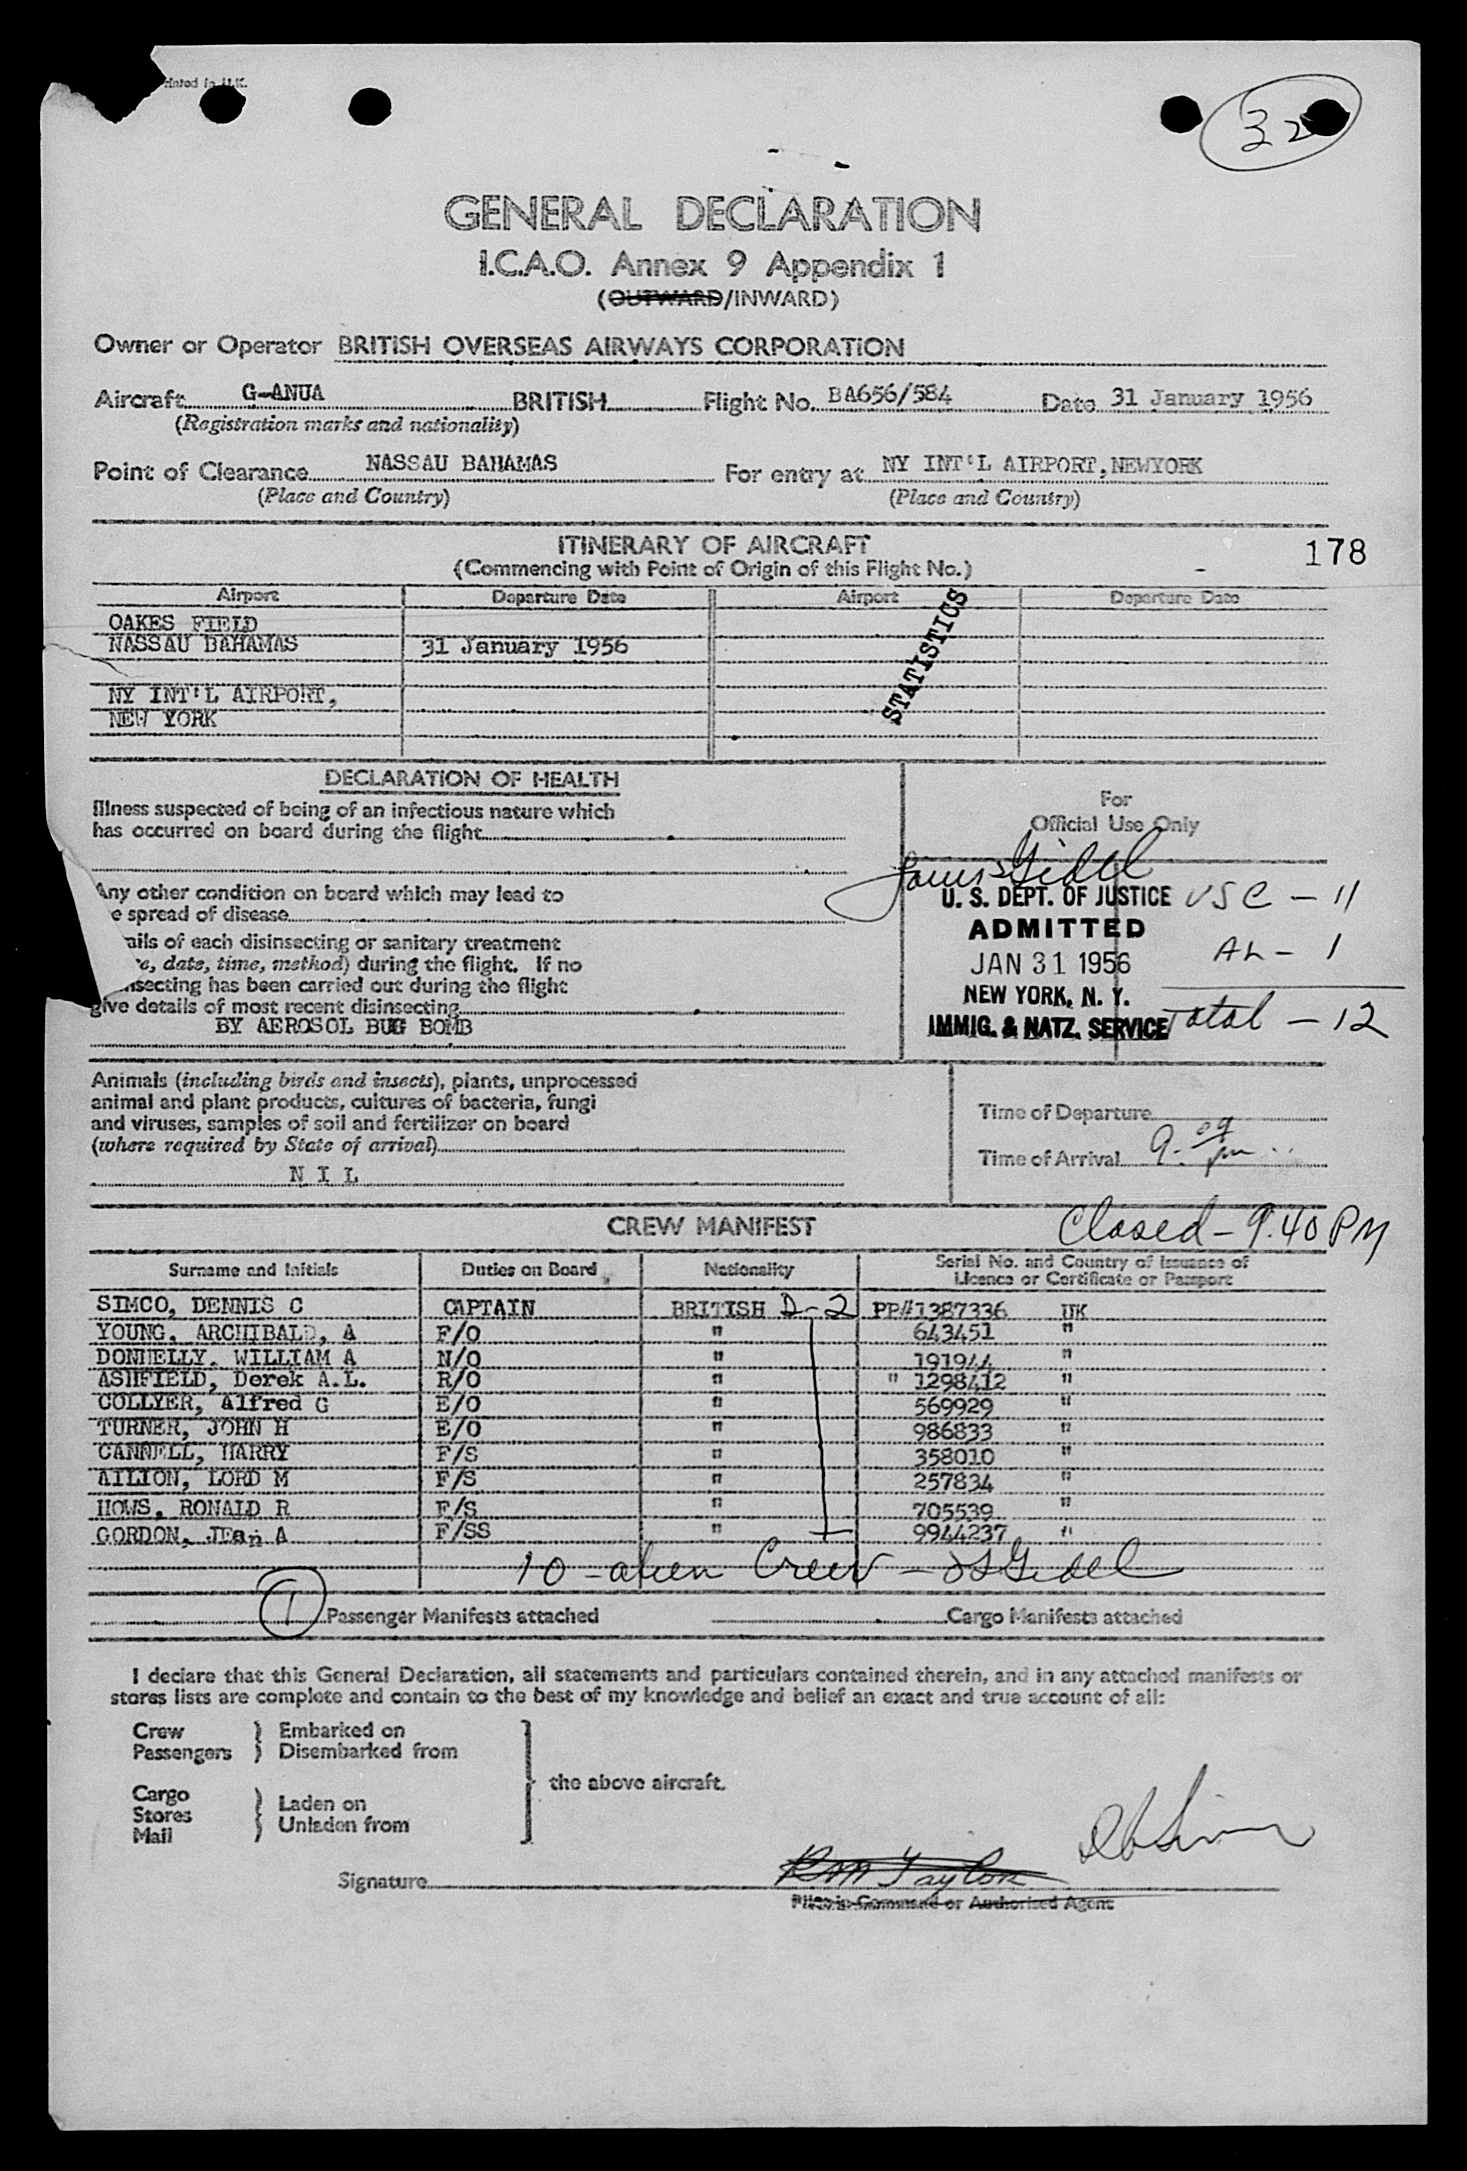 Printed in U.K.
32
GENERAL DECLARATION
I.C.A.O. Annex 9 Appendix 1
(OUTWARD/INWARD)
Owner or Operator BRITISH OVERSEAS AIRWAYS CORPORATION
Aircraft G-ANUA BRITISH Flight No. BA656/584 Date 31 January 1956
(Registration marks and nationality)
Point of Clearance NASSAU BAHAMAS For entry at NY INT'L AIRPORT, NEWYORK
(Place and Country) (Place and Country)
ITINERARY OF AIRCRAFT 178
(Commencing with Point of Origin of this Flight No.)
Airport Departure Date Airport Departure Date
OAKES FIELD
NASSAU BAHAMAS 31 January 1956
STATISTICS
NY INT'L AIRPORT,
NEW YORK
DECLARATION OF HEALTH
Illness suspected of being of an infectious nature which
has occurred on board during the flight
Any other condition on board which may lead to
e spread of disease
ails of each disinsecting or sanitary treatment
e, date, time, method) during the flight. If no
insecting has been carried out during the flight
give details of most recent disinsecting
BY AEROSOL BUG BOMB
For
Official Use Only
Gidel
U. S. DEPT. OF JUSTICE USC - 11
ADMITTED
JAN 31 1956 AL - 1
NEW YORK, N. Y.
IMMIG. & NATZ. SERVICE Total - 12
Animals (including birds and insects), plants, unprocessed
animal and plant products, cultures of bacteria, fungi
and viruses, samples of soil and fertilizer on board
(where required by State of arrival)
N I L
Time of Departure
Time of Arrival 9.09 pm
Closed - 9.40 PM
CREW MANIFEST
Surname and Initials Duties on Board Nationality Serial No. and Country of Issuance of
Licence or Certificate or Passport
SIMCO, DENNIS C CAPTAIN BRITISH D-2 PP#1387336 UK
YOUNG, ARCHIBALD, A F/O " 643451 "
DONNELLY, WILLIAM A N/O " 191944 "
ASHFIELD, Derek A.L. R/O " " 1298412 "
COLLYER, Alfred G E/O " 569929 "
TURNER, JOHN H E/O " 986833 "
CANNELL, HARRY F/S " 358010 "
AILION, LORD M F/S " 257834 "
HOWS, RONALD R F/S " 705539 "
GORDON, JEan A F/SS " 9944237 "
10 - alien Crew - Gidel
1 Passenger Manifests attached Cargo Manifests attached
I declare that this General Declaration, all statements and particulars contained therein, and in any attached manifests or
stores lists are complete and contain to the best of my knowledge and belief an exact and true account of all:
Crew Embarked on
Passengers Disembarked from
the above aircraft.
Cargo
Stores Laden on
Mail Unladen from
Signature RM Taylor
Pilot in Command or Authorised Agent